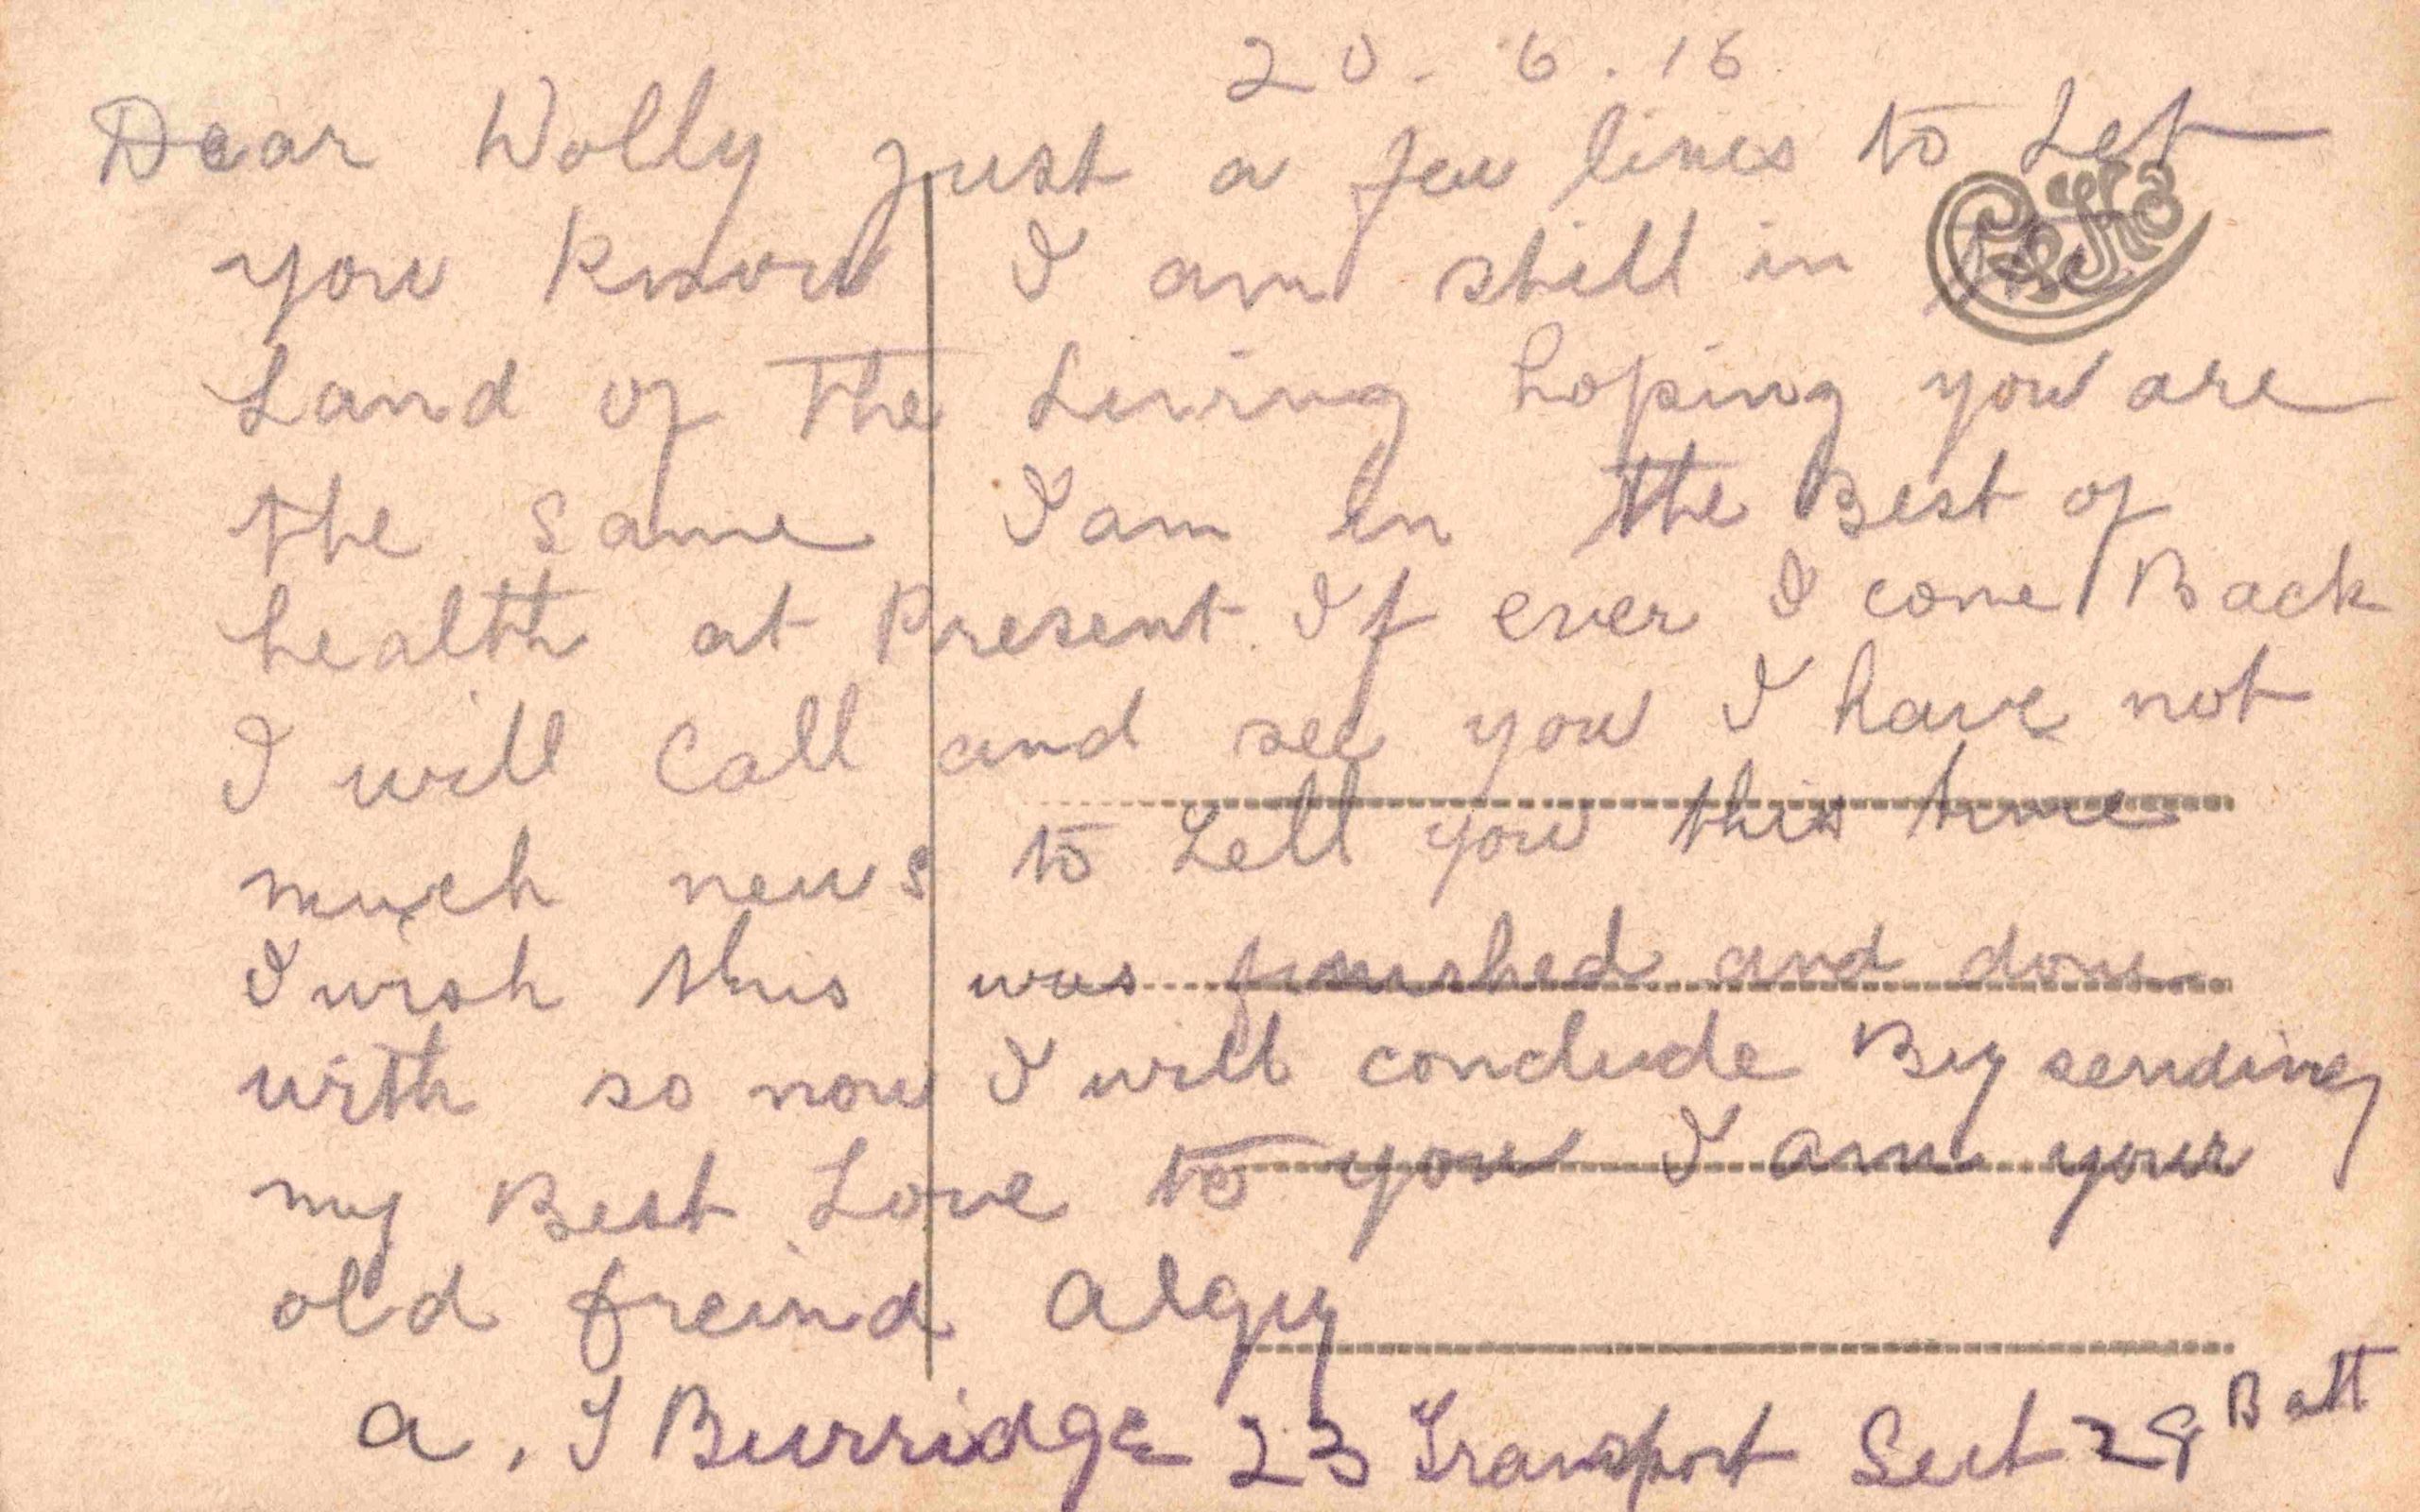 20. 6. 16
Dear Wolly just a few lines to Let
you know I am still in the
Land of The Living hoping you are
the same I am in the Best of
health at Present. If ever I come Back
I will Call and see you I have not
much news to Tell you this time
I wish this was finished and done
with so now I will conclude By sending
my Best Love to you I am your
old freind Algy
A. J Burridge 23 Transport Sect 28 Batt